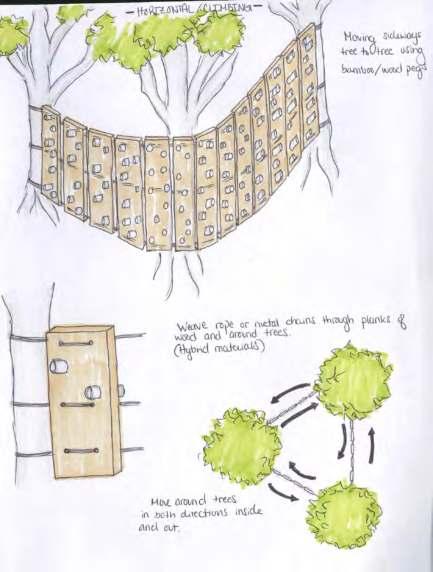 - HORIZONTAL CLIMBING -
Moving sideways
tree to tree using
bamboo/wood pegs
Weave rope or metal chains through planks of
wood and around trees.
(Hybrid materials)
Move around trees
in both directions inside
and out.